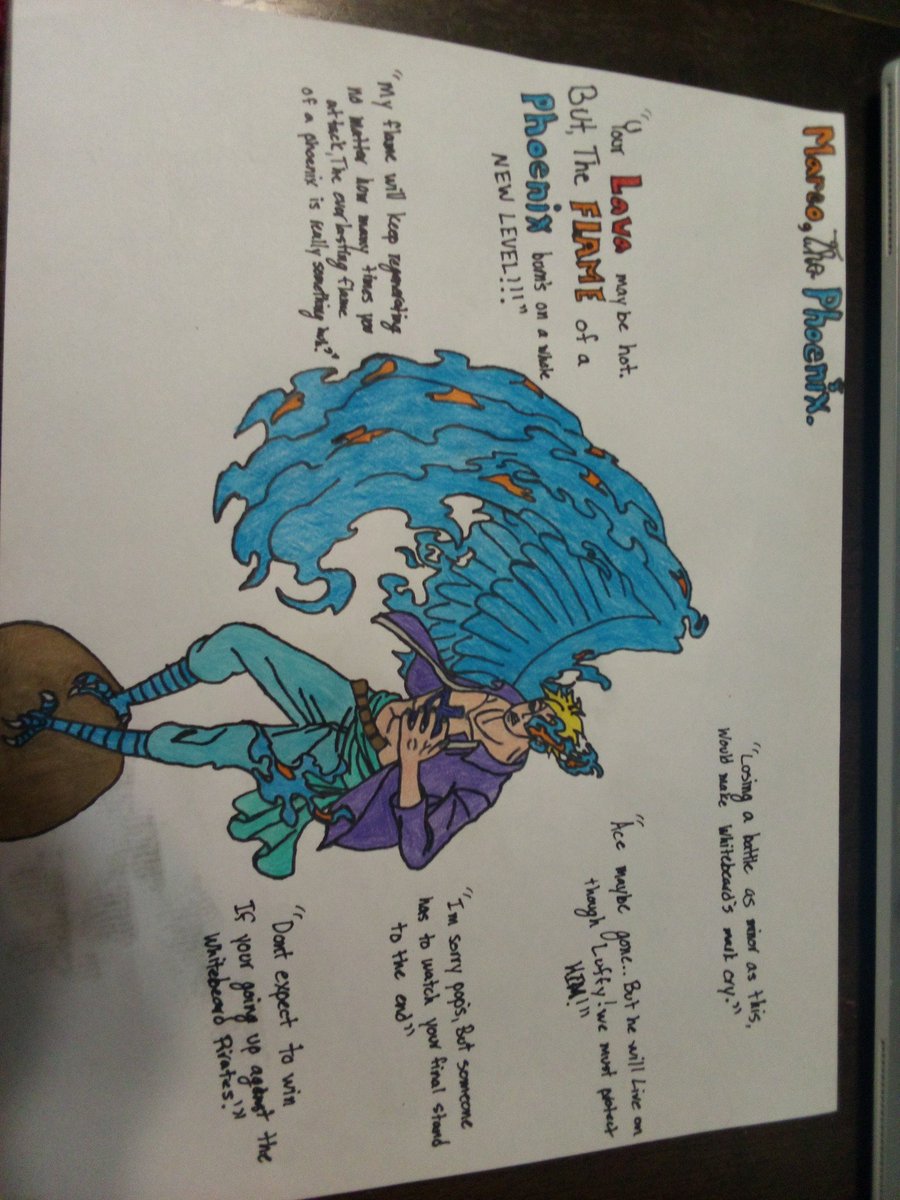 Marco, The Phoenix.
"Your Lava may be hot.
But, The FLAME of a
Phoenix burn's on a whole
NEW LEVEL!!!"
"My flame will keep regenerating
no matter how many times you
attack, The everlasting flame
of a phoenix is really something huh?"
"Losing a battle as minor as this,
Would make Whitebeard's mark cry."
"Ace maybe gone... But he will Live on
though Luffy! we must protect
HIM!"
"I'm sorry pop's, But someone
has to watch your final stand
to the end"
"Dont expect to win
If your going up against the
Whitebeard Pirates!"